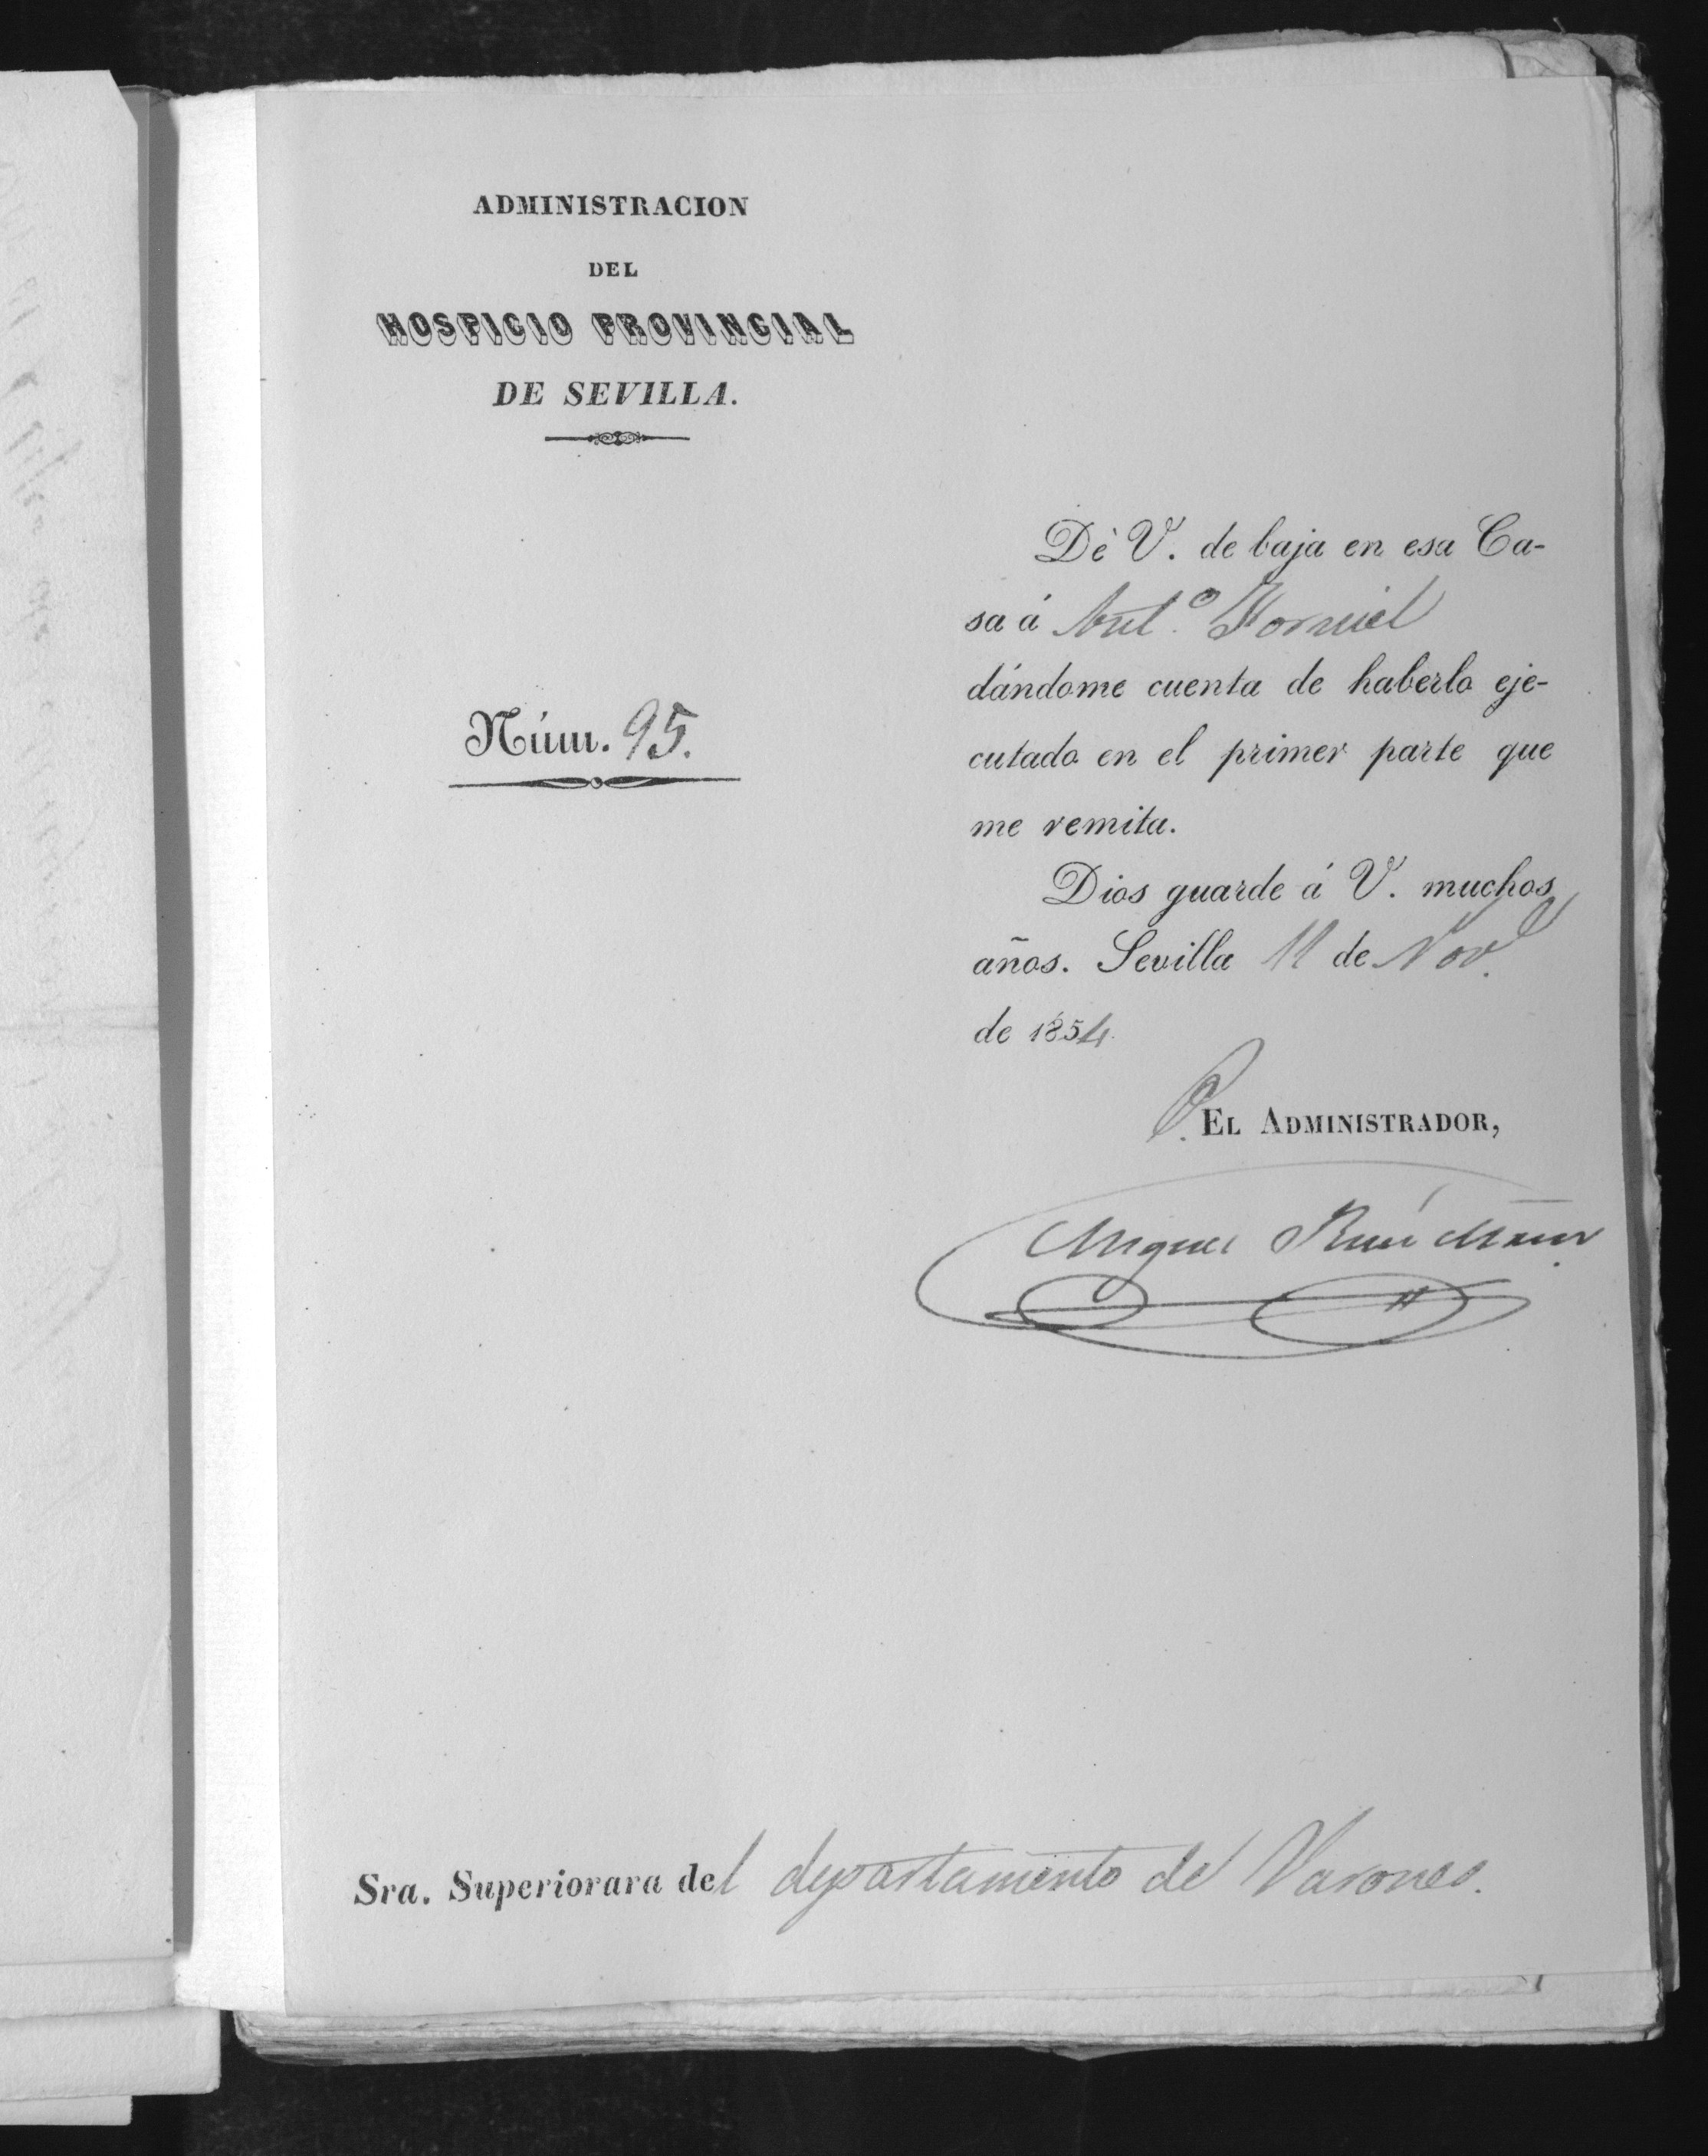 ADMINISTRACION
DEL
HOSPICIO PROVINCIAL
DE SEVILLA.
Núm. 95.
Dè V. de baja en esa Ca-
sa á Ant.º
dándome cuenta de haberlo eje-
cutado en el primer parte que
me remita.
Dios guarde á V. muchos
años. Sevilla 11 de Nov.e
de 1854
P. EL ADMINISTRADOR,
Miguel
Sra. Superiorara del departamento de Varones.